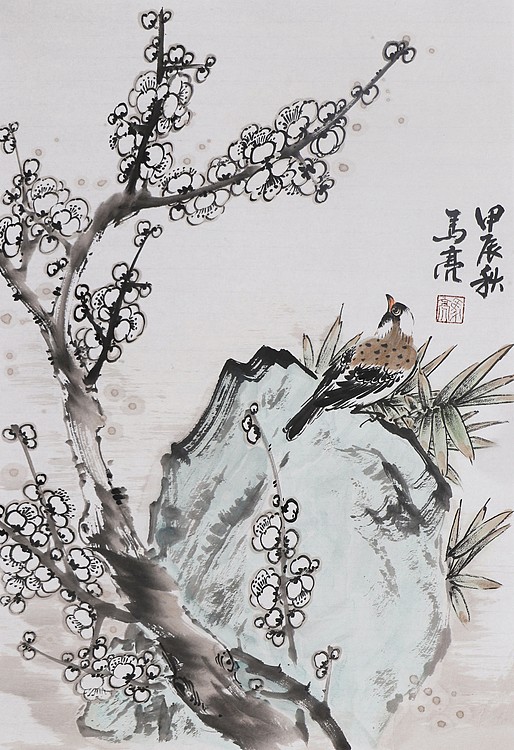 甲辰秋
马亮